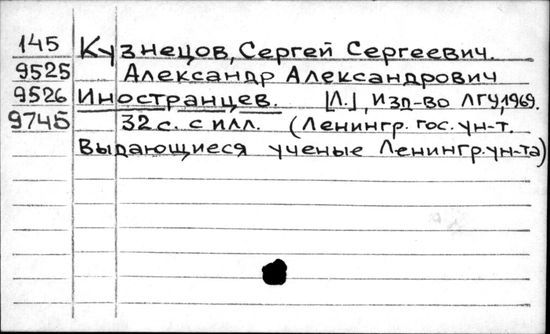 145 Кузнецов, Сергей Сергеевич.
9525 Александр Александрович
9526 Иностранцев. [Л.], Изд-во ЛГУ, 1969.
9745 32 с. с илл. (Ленингр. гос. ун-т.
Выдающиеся ученые Ленингр. ун-та)